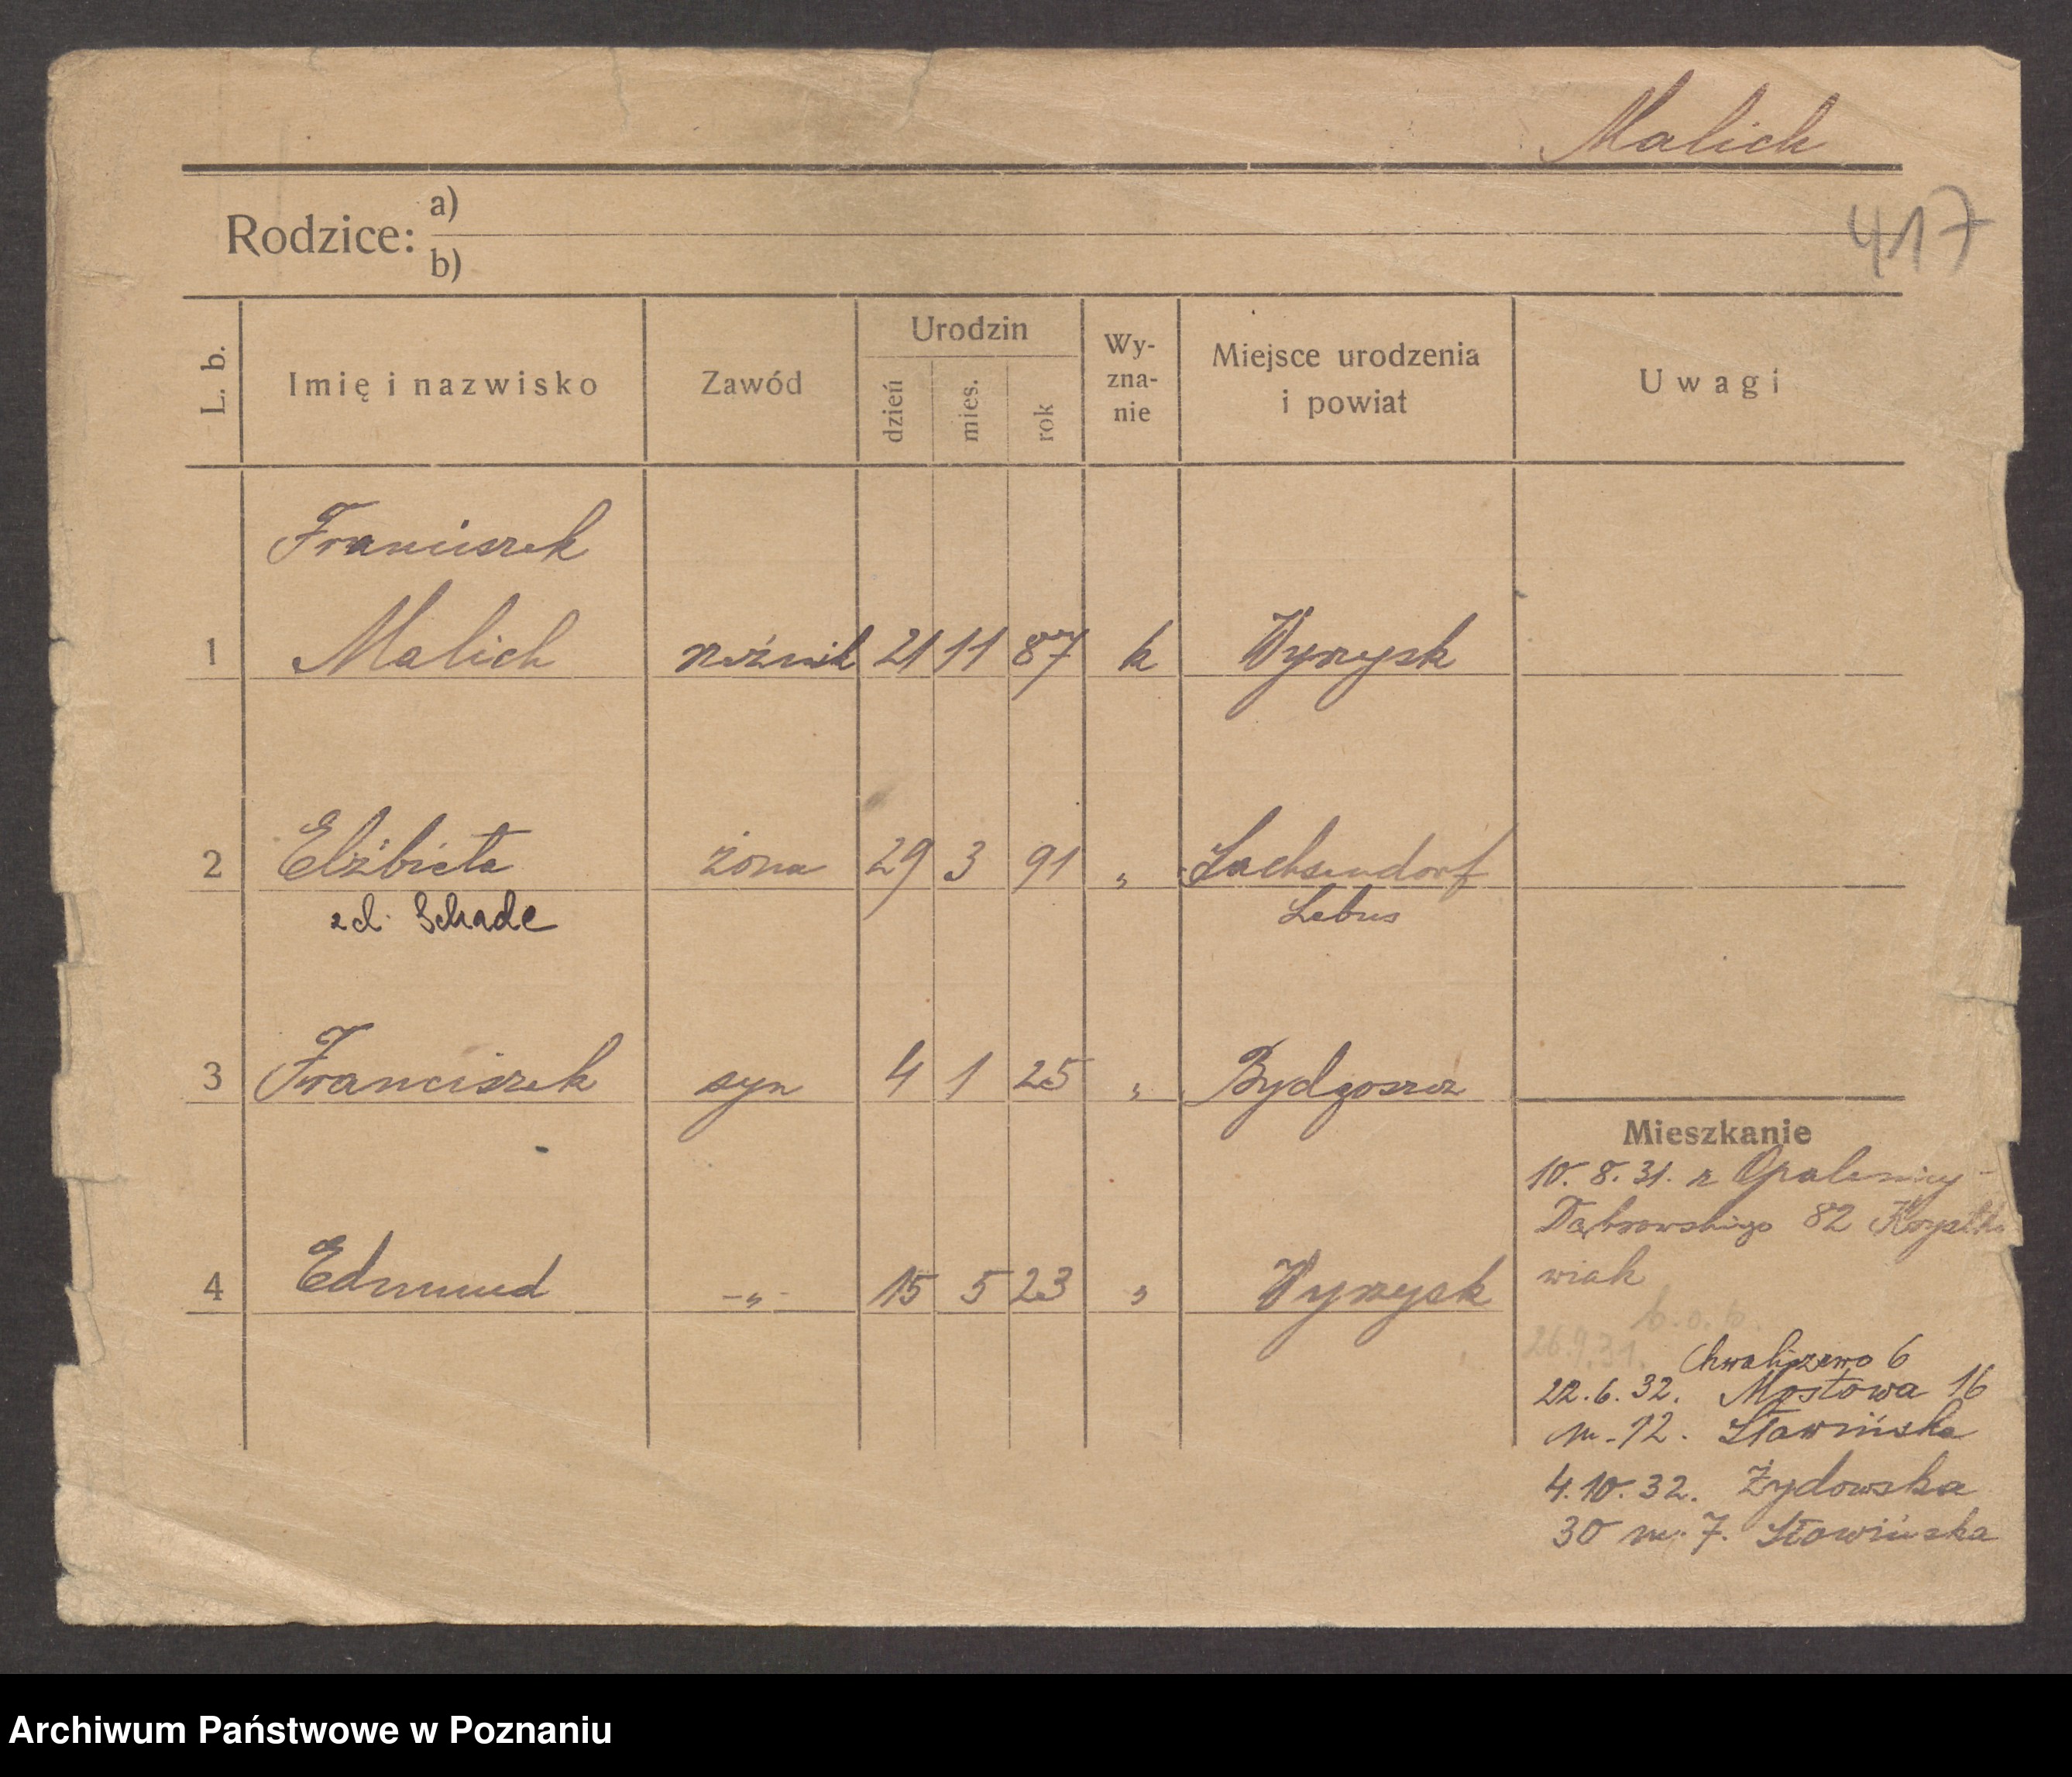 Malich
417
Rodzice:
a)
b)
L. b.
Imię i nazwisko
Zawód
Urodzin
dzień
mies.
rok
Wy-
zna-
nie
Miejsce urodzenia
i powiat
Uwagi
Franciszek
1 Malich rzeźnik 21 11 87 k Wyrzysk
2 Elżbieta żona 29 3 91 „ Sachsendorf
zd. Schade Lebus
3 Franciszek syn 4 1 25 „ Bydgoszcz
4 Edmund -„- 15 5 23 „ Wyrzysk
Mieszkanie
10.8.31. z Opalenicy -
Dąbrowskiego 82
wiak
b.o.p.
26.9.31.
Chwaliszewo 6
22.6.32. Mostowa 16
m. 12. Sławińska
4.10.32. Żydowska
30 m. 7. Sławińska
Archiwum Państwowe w Poznaniu